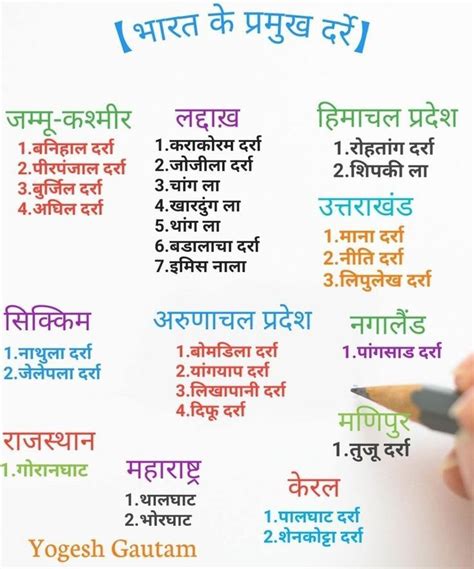 【भारत के प्रमुख दर्रे】
जम्मू-कश्मीर
1.बनिहाल दर्रा
2.पीरपंजाल दर्रा
3.बुर्जिल दर्रा
4.अघिल दर्रा
लद्दाख़
1.कराकोरम दर्रा
2.जोजीला दर्रा
3.चांग ला
4.खारदुंग ला
5.थांग ला
6.बडालाचा दर्रा
7.इमिस नाला
हिमाचल प्रदेश
1.रोहतांग दर्रा
2.शिपकी ला
उत्तराखंड
1.माना दर्रा
2.नीति दर्रा
3.लिपुलेख दर्रा
सिक्किम
1.नाथुला दर्रा
2.जेलेपला दर्रा
अरुणाचल प्रदेश
1.बोमडिला दर्रा
2.यांगयाप दर्रा
3.लिखापानी दर्रा
4.दिफू दर्रा
नगालैंड
1.पांगसाड दर्रा
मणिपुर
1.तुजू दर्रा
राजस्थान
1.गोरानघाट
महाराष्ट्र
1.थालघाट
2.भोरघाट
केरल
1.पालघाट दर्रा
2.शेनकोट्टा दर्रा
Yogesh Gautam